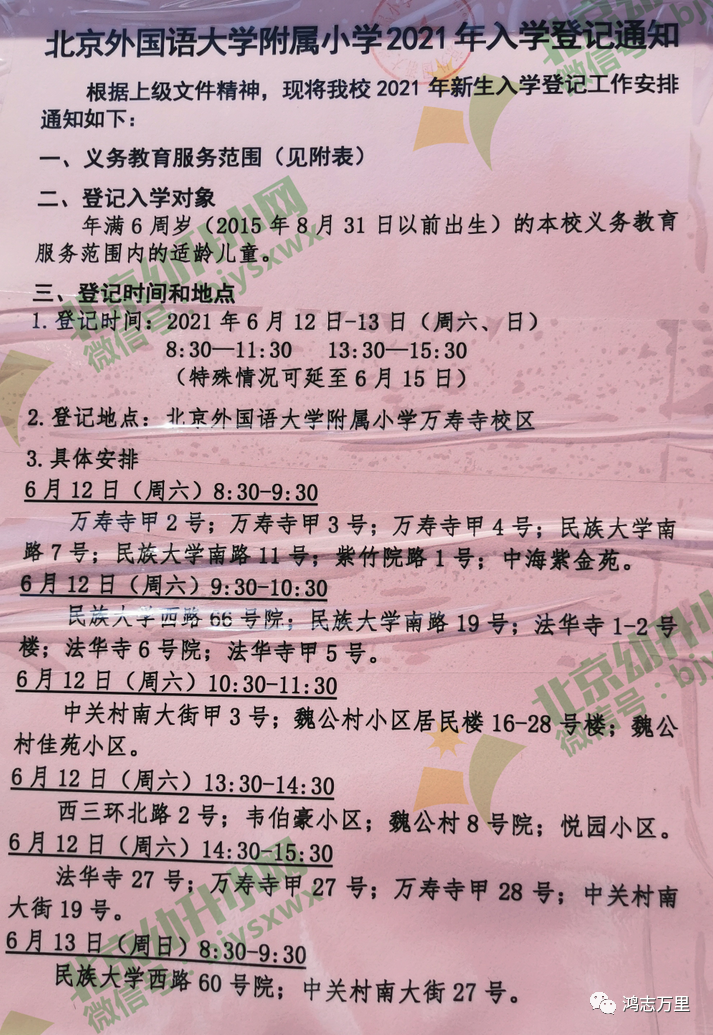 北京外国语大学附属小学2021年入学登记通知
根据上级文件精神，现将我校2021年新生入学登记工作安排
通知如下：
一、义务教育服务范围（见附表）
二、登记入学对象
年满6周岁（2015年8月31日以前出生）的本校义务教育
服务范围内的适龄儿童。
三、登记时间和地点
1.登记时间：2021年6月12日-13日（周六、日）
8:30—11:30 13:30—15:30
（特殊情况可延至6月15日）
2.登记地点：北京外国语大学附属小学万寿寺校区
3.具体安排
6月12日（周六）8:30-9:30
万寿寺甲2号；万寿寺甲3号；万寿寺甲4号；民族大学南
路7号；民族大学南路11号；紫竹院路1号；中海紫金苑。
6月12日（周六）9:30-10:30
民族大学西路66号院；民族大学南路19号；法华寺1-2号
楼；法华寺6号院；法华寺甲5号。
6月12日（周六）10:30-11:30
中关村南大街甲3号；魏公村小区居民楼16-28号楼；魏公
村佳苑小区。
6月12日（周六）13:30-14:30
西三环北路2号；韦伯豪小区；魏公村8号院；悦园小区。
6月12日（周六）14:30-15:30
法华寺27号；万寿寺甲27号；万寿寺甲28号；中关村南
大街19号。
6月13日（周日）8:30-9:30
民族大学西路60号院；中关村南大街27号。
北京幼升小网
微信号：bjysxwx
北京幼升小网
微信号：bjy
北京幼升小网
微信号：bjysxwx
鸿志万里